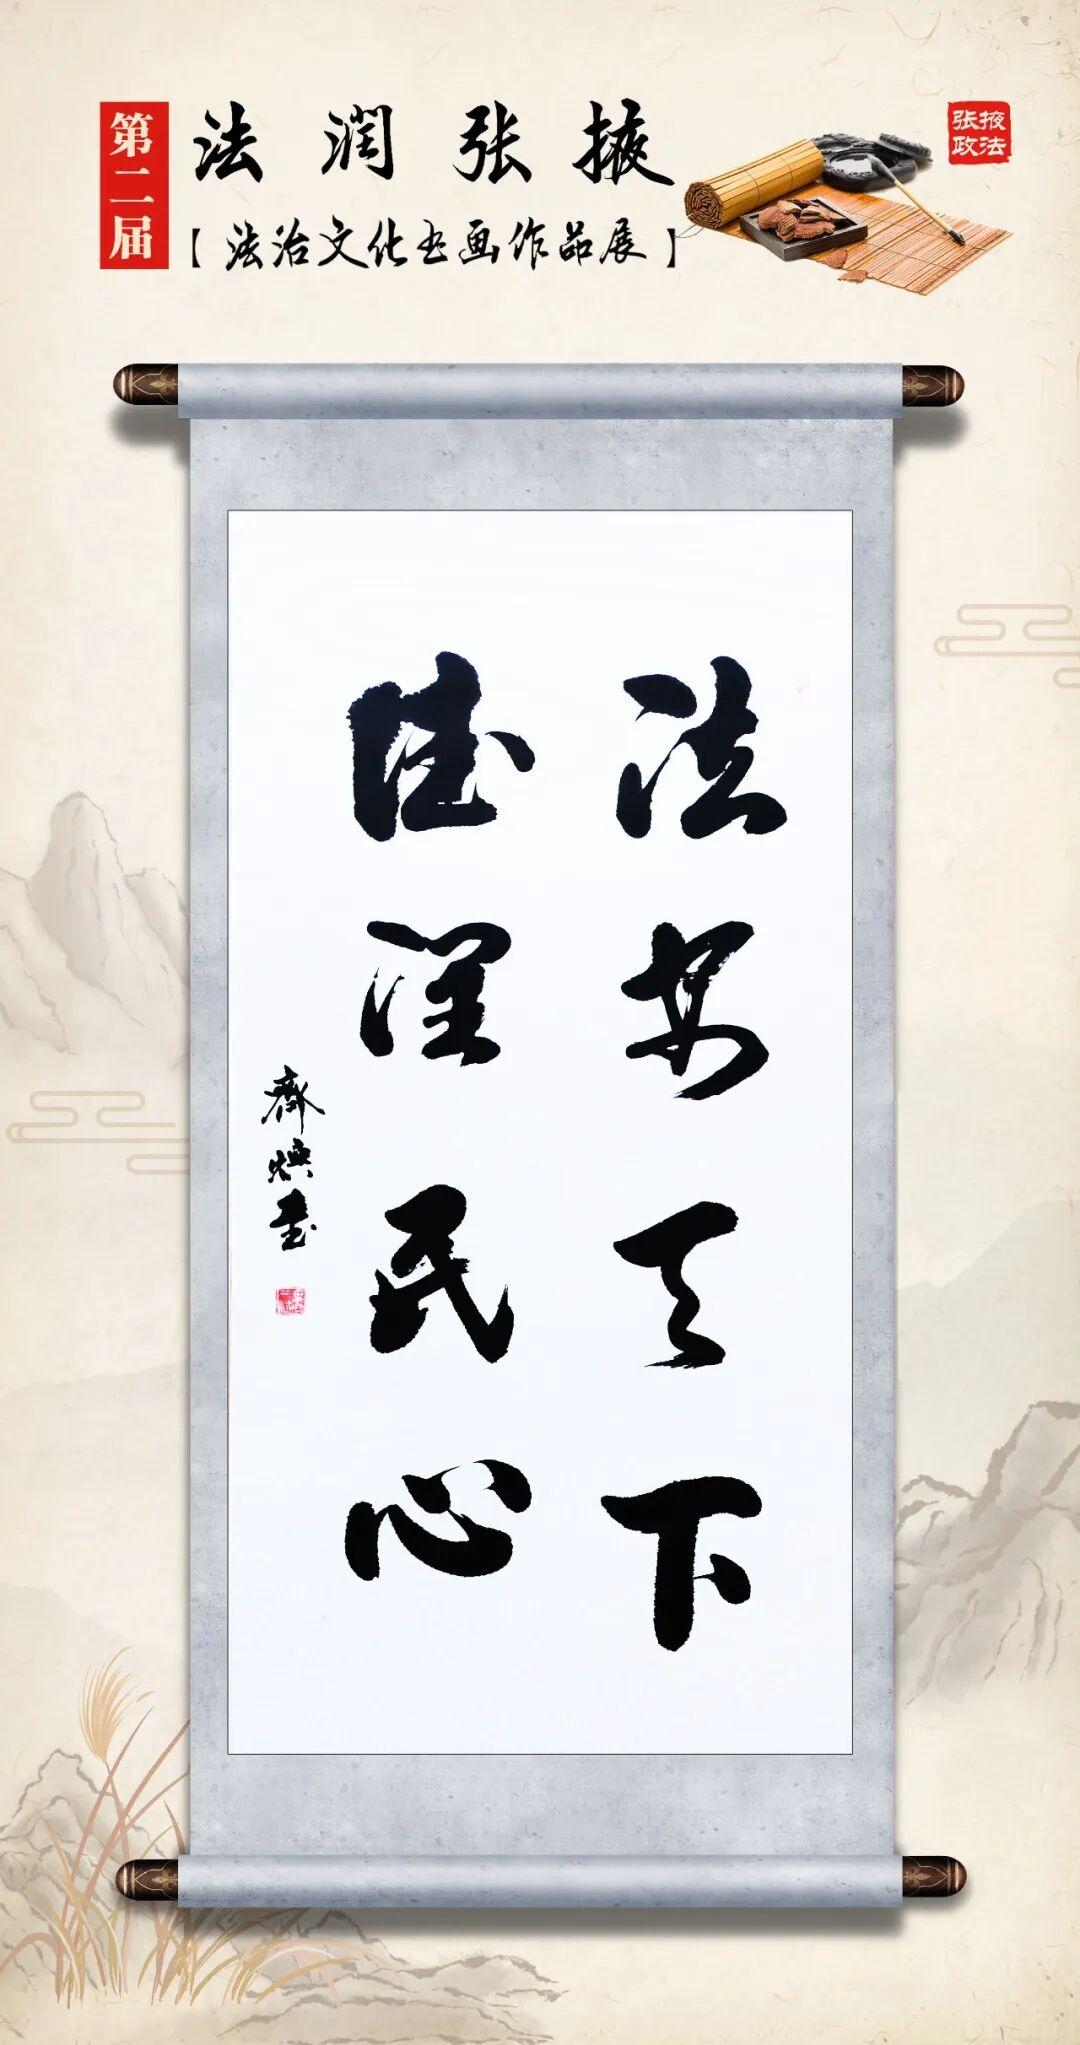 第二届
法润张掖
【法治文化书画作品展】
张掖
政法
法安天下
德润民心
齊焕書